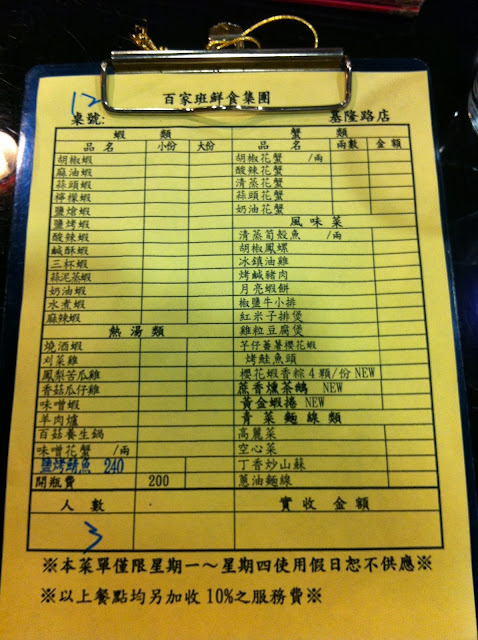 百家班鮮食集團
12
桌號: 基隆路店
蝦 類 蟹 類
品 名 小份 大份 品 名 兩數 金額
胡椒蝦 胡椒花蟹 /兩
麻油蝦 酸辣花蟹
蒜頭蝦 清蒸花蟹
檸檬蝦 蒜頭花蟹
鹽焗蝦 奶油花蟹
鹽烤蝦 風味菜
酸辣蝦 清蒸荀殼魚 /兩
鹹酥蝦 胡椒鳳螺
三杯蝦 冰鎮油雞
蒜泥蒸蝦 烤鹹豬肉
奶油蝦 月亮蝦餅
水煮蝦 椒鹽牛小排
麻辣蝦 紅米子排煲
熱湯類 雞粒豆腐煲
燒酒蝦 芋仔蕃薯櫻花蝦
刈菜雞 烤鮭魚頭
鳳梨苦瓜雞 櫻花蝦香粽4顆/份NEW
香菇瓜仔雞 蔗香燻茶鵝 NEW
味噌蝦 黃金蝦捲 NEW
羊肉爐 青菜麵線類
百菇養生鍋 高麗菜
味噌花蟹 /兩 空心菜
鹽烤鯖魚 240 丁香炒山蘇
開瓶費 200 蔥油麵線
人 數 實收金額
3
※本菜單僅限星期一～星期四使用假日恕不供應※
※以上餐點均另加收10%之服務費※